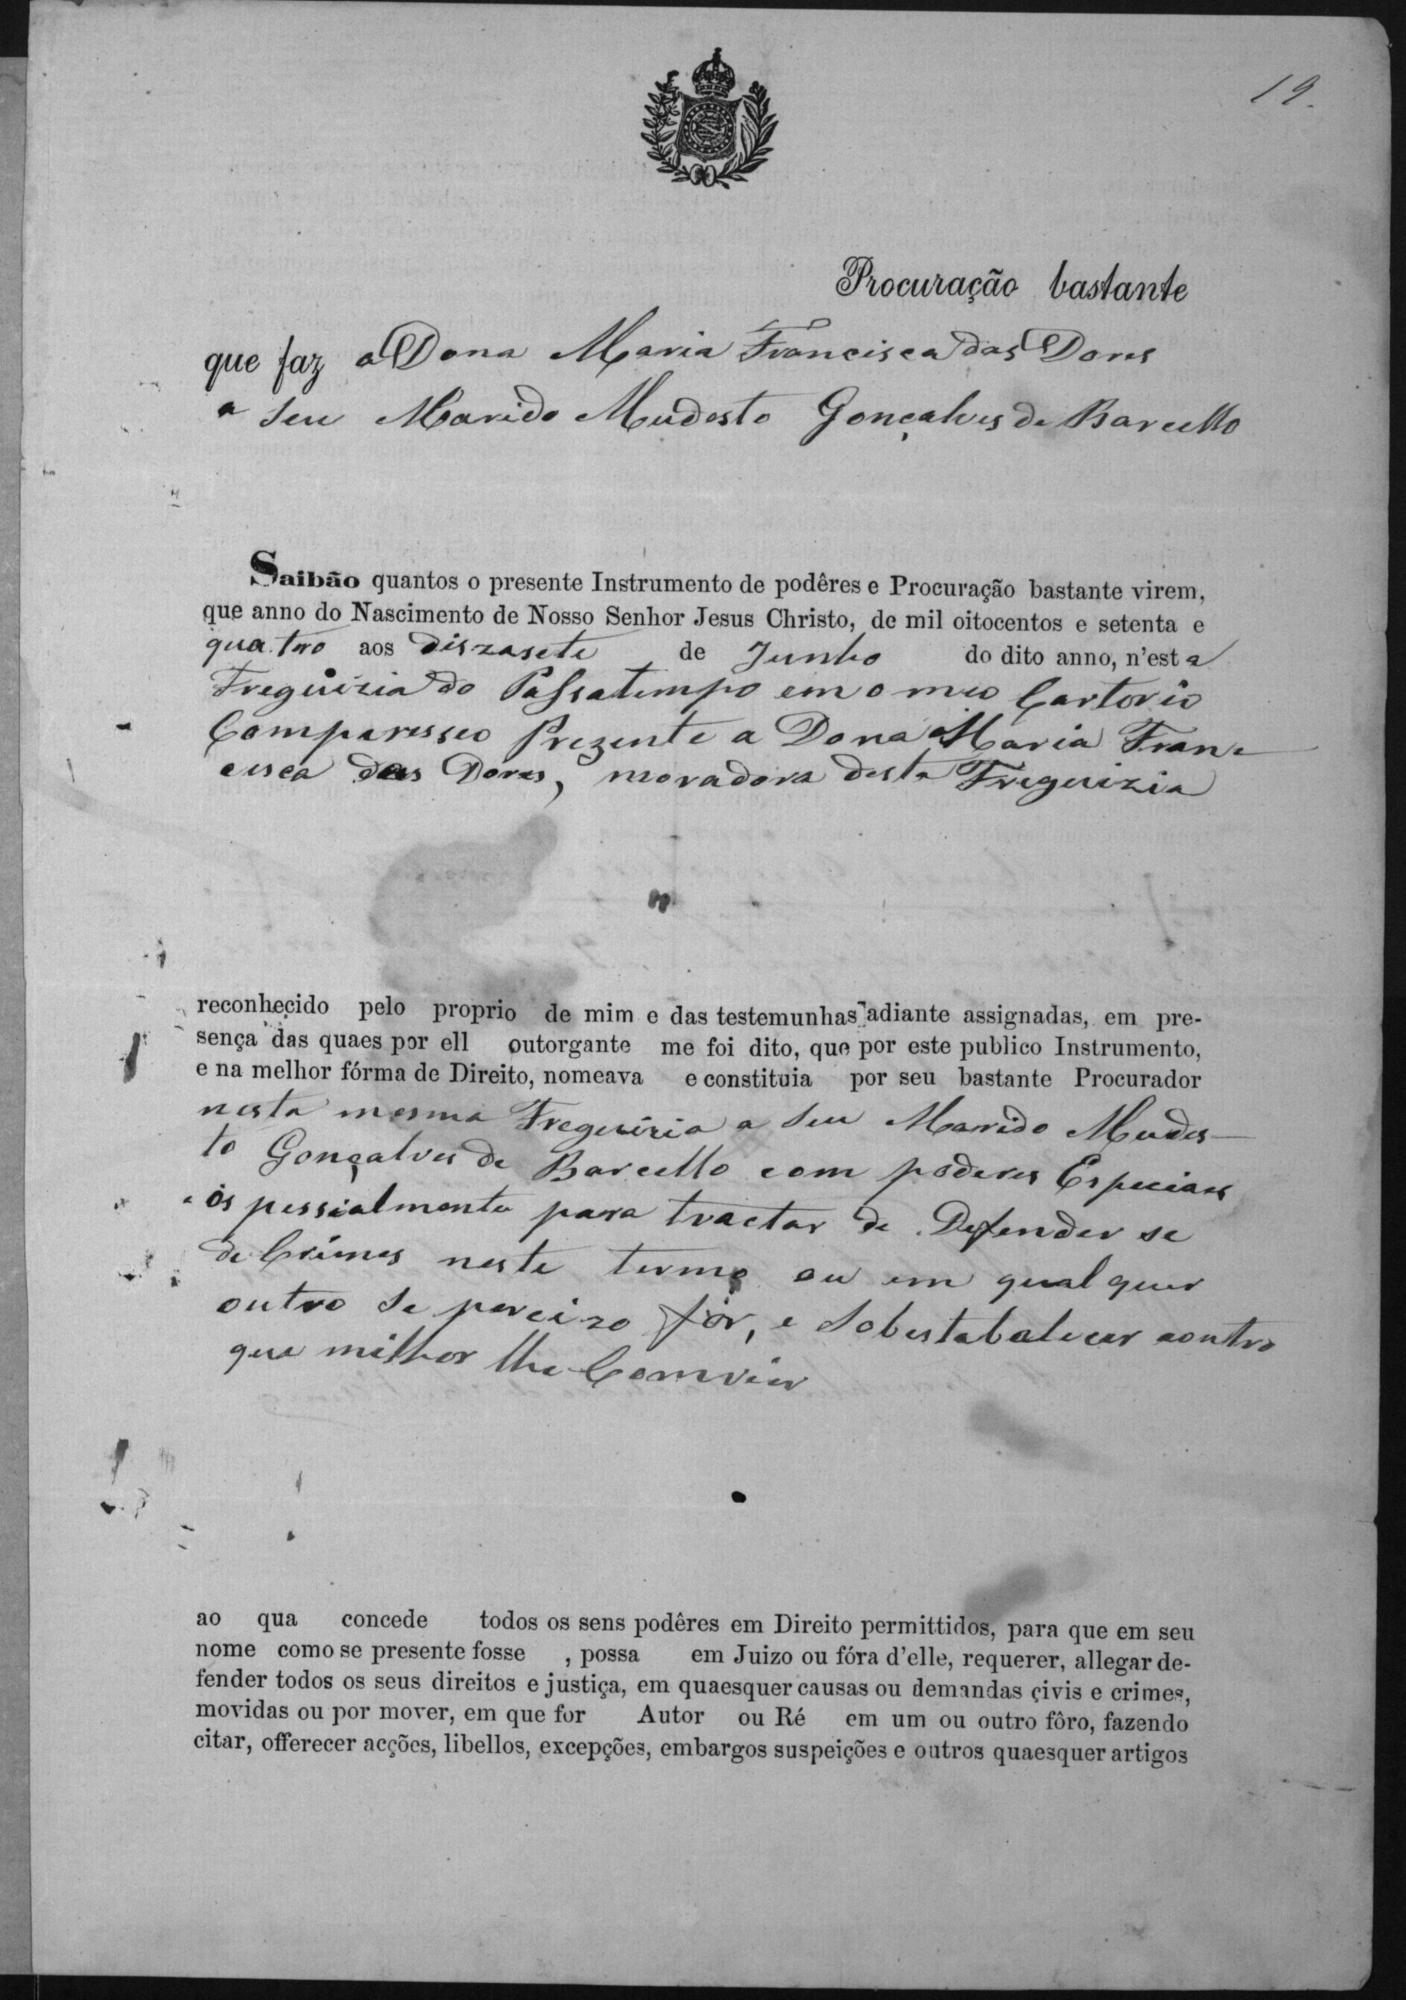 19.
Procuração bastante
que faz a Dona Maria Francisca das Dores
a seu Marido Mudesto Gonçalves de Barcello
Saibão quantos o presente Instrumento de podêres e Procuração bastante virem,
que anno do Nascimento de Nosso Senhor Jesus Christo, de mil oitocentos e setenta e
quatro aos diszasete de Junho do dito anno, n'esta
Freguizia do Passatempo em o meo Cartorio
Comparesseo Prezente a Dona Maria Fran-
cisca das Dores, moradora desta Freguizia
reconhecido pelo proprio de mim e das testemunhas adiante assignadas, em pre-
sença das quaes por ell outorgante me foi dito, que por este publico Instrumento,
e na melhor fórma de Direito, nomeava e constituia por seu bastante Procurador
nesta mesma Freguizia a seu Marido Mudes-
to Gonçalves de Barcello com poderes Especiaes
e os pessialmente para tractar de Defender se
de Crimes neste termo ou em qual quer
outro se percizo fôr, e Sobestabalecer aoutro
que milhor lhe Comvier
ao qua concede todos os sens podêres em Direito permittidos, para que em seu
nome como se presente fosse , possa em Juizo ou fóra d'elle, requerer, allegar de-
fender todos os seus direitos e justiça, em quaesquer causas ou demandas çivis e crimes,
movidas ou por mover, em que for Autor ou Ré em um ou outro fôro, fazendo
citar, offerecer acções, libellos, excepções, embargos suspeições e outros quaesquer artigos